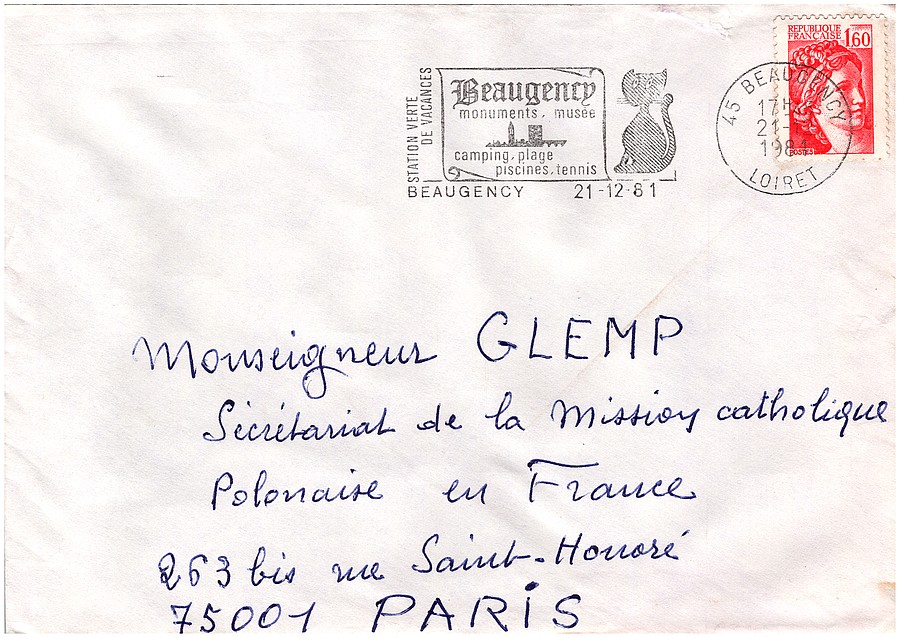 REPUBLIQUE
FRANÇAISE 1,60
STATION VERTE
DE VACANCES
Beaugency
monuments, musée
camping, plage
piscines, tennis
BEAUGENCY 21-12-81
45 BEAUGENCY
17H
21-
1981
LOIRET
Monseigneur GLEMP
Sécrétariat de la Mission catholique
Polonaise en France
263 bis rue Saint-Honoré
75001 PARIS